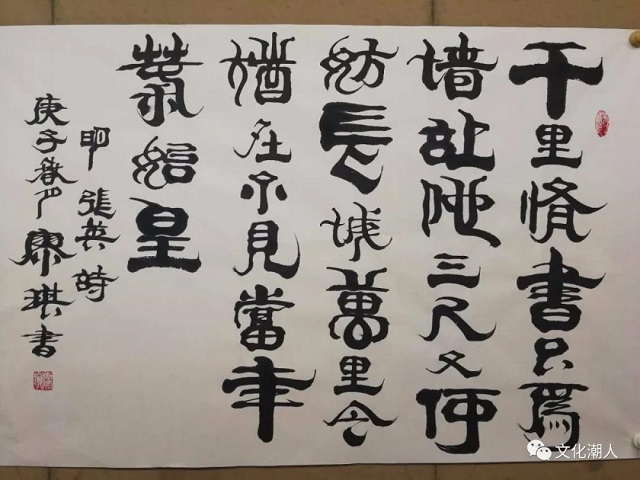 千里脩書只爲
墙让他三尺又何
妨長城萬里今
猶在不見當年
秦始皇
明 張英詩
庚子 廖琪書
文化潮人